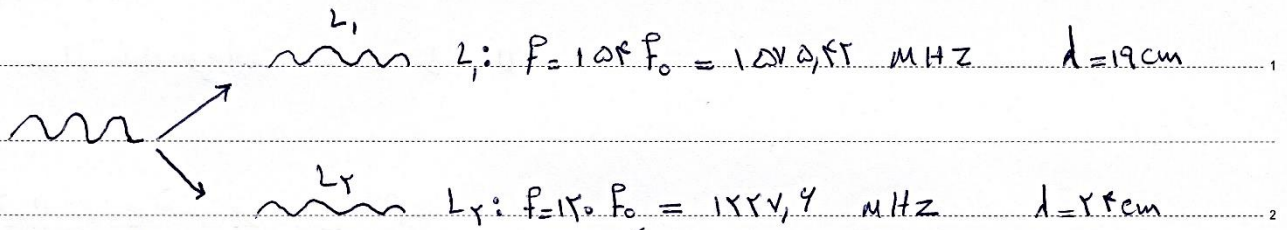 L۱
L۱: f = ۱۵۴ f₀ = ۱۵۷۵,۴۲ MHZ λ = ۱۹ cm
1
L۲
L۲: f = ۱۲۰ f₀ = ۱۲۲۷,۶ MHz λ = ۲۴ cm
2